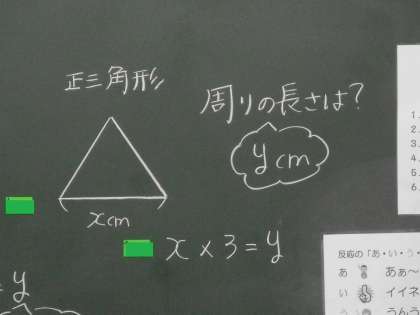 正三角形
周りの長さは?
ycm
xcm
x × 3 = y
= y
1.
2.
3.
4.
5.
6.
反応の「あ・い・う・
あ あぁ〜
い イイネ
う うんう